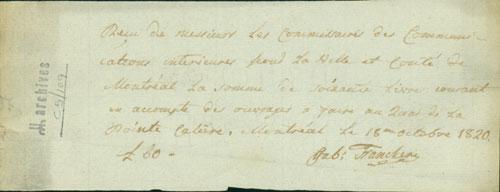 Reçu de messieurs Les Commissaires des Communi-
cations interieures pour La Ville et Comté de
Montréal La somme de soixante Livre courant
en accompte des ouvrages a faire au Quai de La
Pointe Calière. Montréal Le 18me Octobre 1820.
£ 60 - Gab: Franchere
M archives